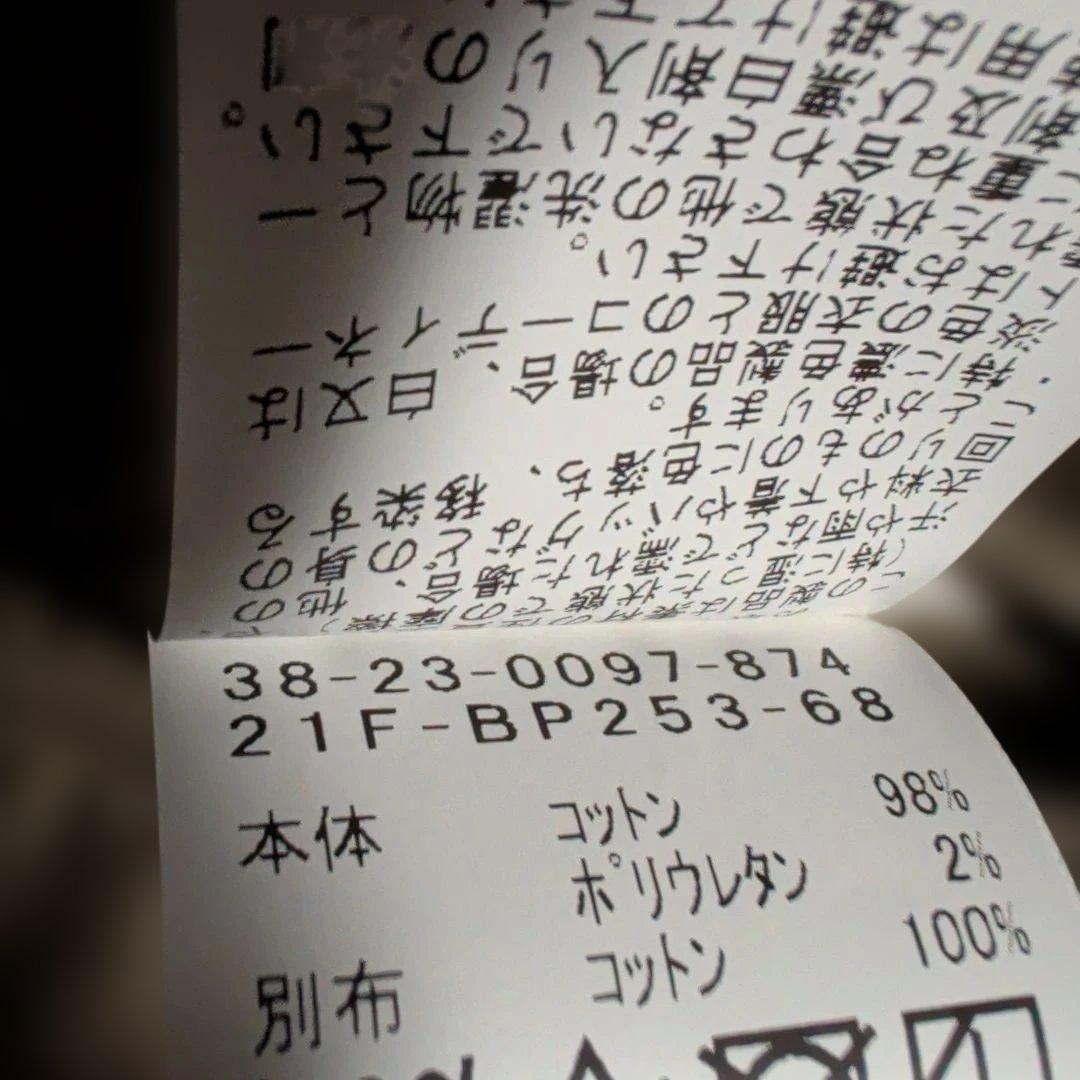 この製品は素材の
（特に湿った状態での摩擦）や、
汗や雨などで濡れた場合、他の
衣料や下着やバッグなどの身の
回りのものに色落ち、移染する
ことがあります。
・特に濃色製品の場合、白又は
淡色の衣服とのコーディネー
トはお避け下さい。
れた状態で他の洗濯物と一
に重ね合わさないで下さい。
剤及び漂白剤入りの
用は避けて下さ
38-23-0097-874
21F-BP253-68
本体 コットン 98%
ポリウレタン 2%
別布 コットン 100%